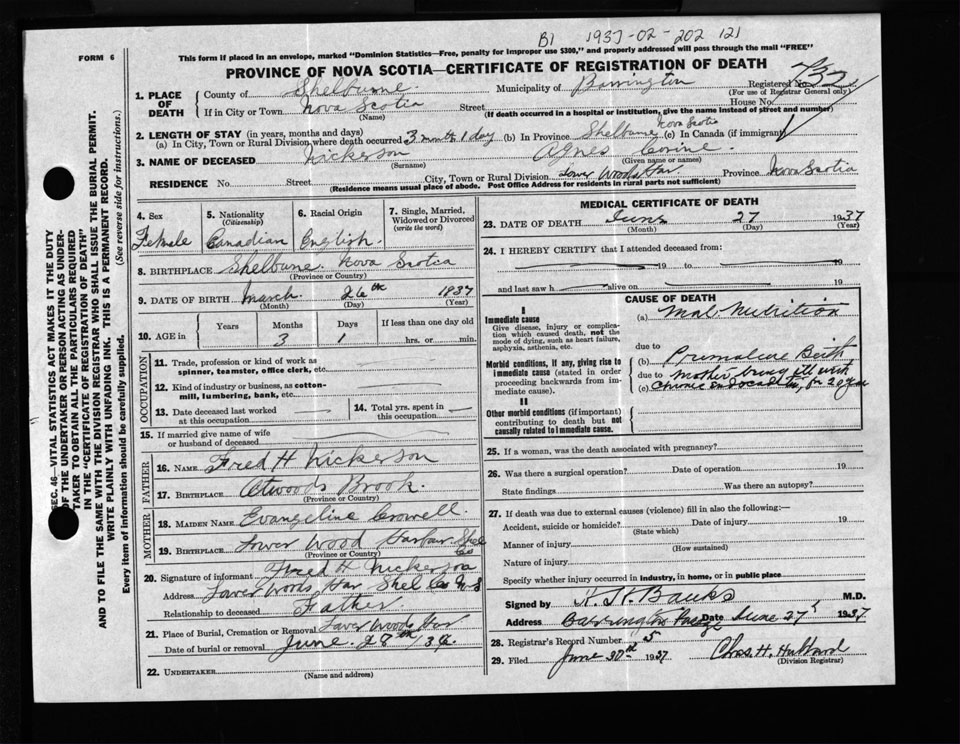 B1 1937-02-202 121
FORM 6
This form if placed in an envelope, marked "Dominion Statistics—Free, penalty for improper use $300," and properly addressed will pass through the mail "FREE"
PROVINCE OF NOVA SCOTIA—CERTIFICATE OF REGISTRATION OF DEATH
1. PLACE OF DEATH
County of Shelburne Municipality of Barrington Registered No.
(For use of Registrar General only)
If in City or Town Nova Scotia Street House No.
(Name) (If death occurred in a hospital or institution, give the name instead of street and number)
2. LENGTH OF STAY (in years, months and days)
(a) In City, Town or Rural Division where death occurred 3 month 1 day (b) In Province Shelburne Nova Scotia (c) In Canada (if immigrant)
3. NAME OF DECEASED Nickerson Agnes Corine
(Surname) (Given name or names)
RESIDENCE No. Street City, Town or Rural Division Lower Woods Har Province Nova Scotia
(Residence means usual place of abode. Post Office Address for residents in rural parts not sufficient)
4. Sex 5. Nationality (Citizenship) 6. Racial Origin 7. Single, Married, Widowed or Divorced (write the word)
Female Canadian English.
8. BIRTHPLACE Shelburne Nova Scotia
(Province or Country)
9. DATE OF BIRTH March 26th 1937
(Month) (Day) (Year)
10. AGE in Years Months Days If less than one day old
3 1 hrs. or min.
OCCUPATION
11. Trade, profession or kind of work as spinner, teamster, office clerk, etc.
12. Kind of industry or business, as cotton-mill, lumbering, bank, etc.
13. Date deceased last worked at this occupation
14. Total yrs. spent in this occupation
15. If married give name of wife or husband of deceased
FATHER
16. NAME Fred H Nickerson
17. BIRTHPLACE Atwoods Brook.
(Province or Country)
MOTHER
18. MAIDEN NAME Evangeline Crowell.
19. BIRTHPLACE Lower Wood Harbour Shel Co
(Province or Country)
20. Signature of informant Fred H Nickerson
Address Lower Woods Har Shel Co N-S
Relationship to deceased Father.
21. Place of Burial, Cremation or Removal Lower Woods Har
Date of burial or removal June 28th/36
22. UNDERTAKER
(Name and address)
MEDICAL CERTIFICATE OF DEATH
23. DATE OF DEATH June 27 1937
(Month) (Day) (Year)
24. I HEREBY CERTIFY that I attended deceased from:
19 to 19
and last saw h alive on 19
I
Immediate cause
Give disease, injury or complication which caused death, not the mode of dying, such as heart failure, asphyxia, asthenia, etc.
Morbid conditions, if any, giving rise to immediate cause (stated in order proceeding backwards from immediate cause).
II
Other morbid conditions (if important) contributing to death but not causally related to immediate cause.
CAUSE OF DEATH
(a) Mal Nutrition
due to
(b) Premature Birth
due to mother being ill with
(c) Chronic Endocarditis, for 2 years
25. If a woman, was the death associated with pregnancy?
26. Was there a surgical operation? Date of operation 19
State findings Was there an autopsy?
27. If death was due to external causes (violence) fill in also the following:—
Accident, suicide or homicide? Date of injury 19
(State which)
Manner of injury
(How sustained)
Nature of injury
Specify whether injury occurred in industry, in home, or in public place
Signed by H. H. Banks M.D.
Address Barrington Passage Date June 27 1937
28. Registrar's Record Number 5
29. Filed June 30th 1937 Chas. H. Hubbard
(Division Registrar)
SEC. 46—VITAL STATISTICS ACT MAKES IT THE DUTY
OF THE UNDERTAKER OR PERSON ACTING AS UNDER-
TAKER TO OBTAIN ALL THE PARTICULARS REQUIRED
IN THE "CERTIFICATE OF REGISTRATION OF DEATH"
AND TO FILE THE SAME WITH THE DIVISION REGISTRAR WHO SHALL ISSUE THE BURIAL PERMIT.
WRITE PLAINLY WITH UNFADING INK. THIS IS A PERMANENT RECORD.
Every item of information should be carefully supplied. (See reverse side for instructions.)